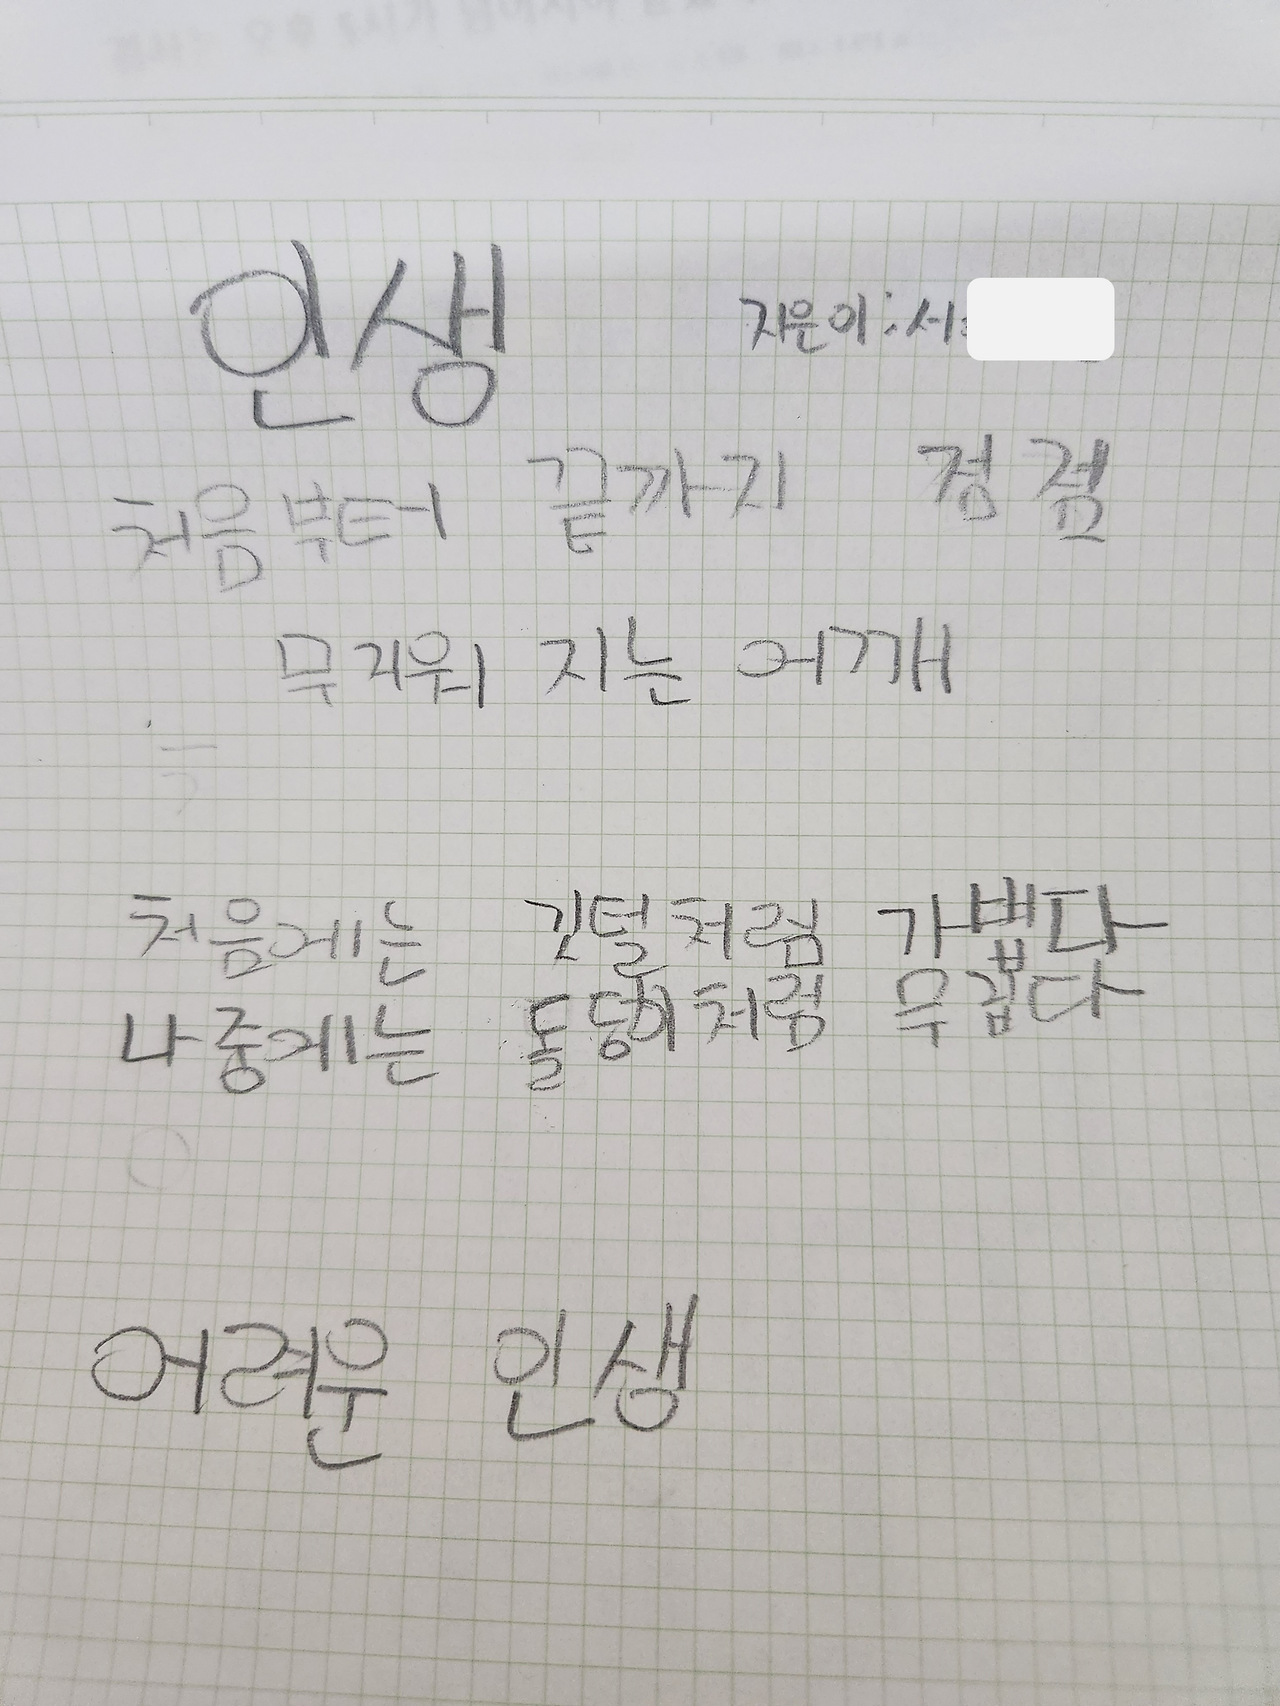 인생
지은이:서
처음부터 끝까지 점점
무거워 지는 어깨
처음에는 깃털처럼 가볍다
나중에는 돌덩이처럼 무겁다
어려운 인생